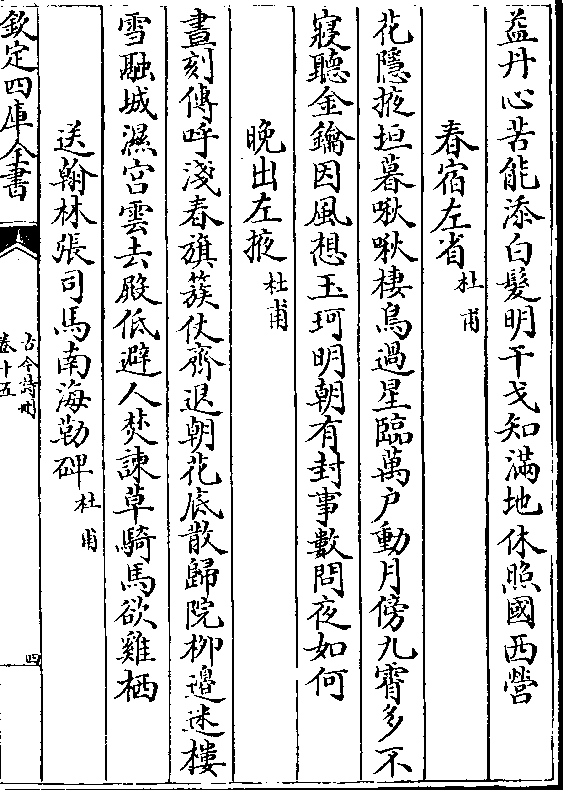 益丹心苦能添白髮明干戈知滿地休照國西營
春宿左省杜甫
花隱掖垣暮啾啾棲鳥過星臨萬户動月傍九霄多不
寢聽金鑰因風想玉珂明朝有封事數問夜如何
晚出左掖杜甫
晝刻傳呼淺春旗簇仗齊退朝花底散歸院柳邊迷樓
雪融城濕宫雲去殿低避人焚諫草騎馬欲雞栖
送翰林張司馬南海勒碑杜甫
欽定四庫全書
古今詩刪
卷十五
四